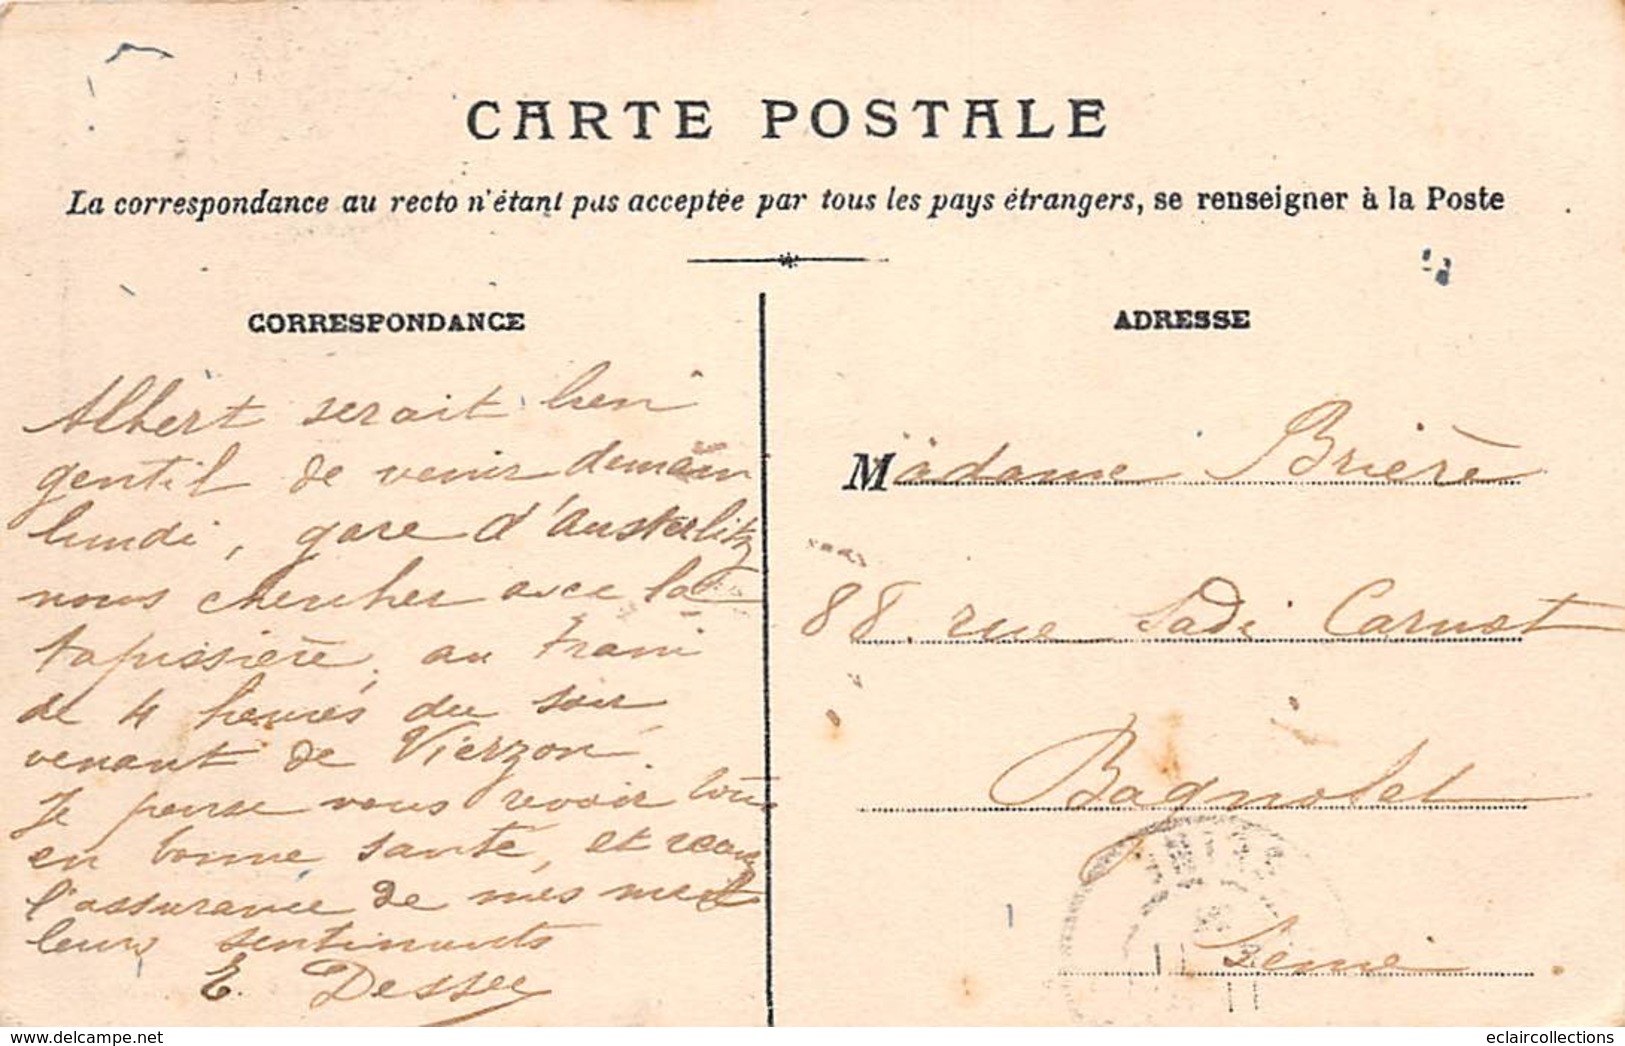 CARTE POSTALE
La correspondance au recto n'étant pas acceptée par tous les pays étrangers, se renseigner à la Poste
CORRESPONDANCE
Albert serait bien
gentil de venir demain
lundi, gare d'Austerlitz
nous chercher avec la
tapissière, au train
de 4 heures du soir
venant de Vierzon.
Je pense vous revoir tous
en bonne santé, et recevez
l'assurance de mes meil
leurs sentiments
E. Dessee
ADRESSE
Madame Brière
88. rue Sadi Carnot
Bagnolet
Seine
www.delcampe.net
eclaircollections